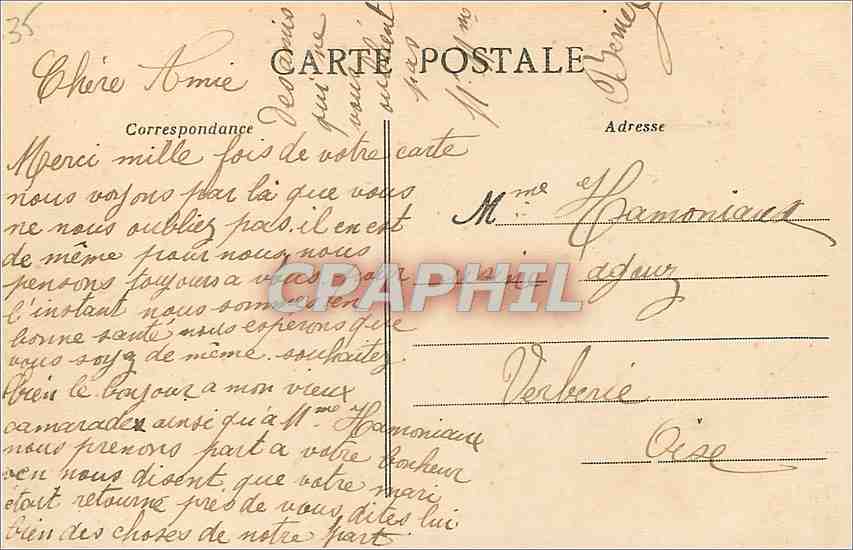 35
CARTE POSTALE
Chère Amie
Correspondance
Merci mille fois de votre carte
nous voyons par là que vous
ne nous oubliez pas. il en est
de même pour nous nous
pensons toujours a vous pour
l'instant nous sommes en
bonne santé nous esperons que
vous soyez de même souhaitez
bien le bonjour a mon vieux
camarade ainsi qu'à Mme Hamoniaux
nous prenons part a votre bonheur
en nous disent que votre mari
était retourné près de vous dites lui
bien des choses de notre part
des amis
qui ne
vous
oublient
pas
Mr Mme
Adresse
Mme Hamoniaux
usine
Verberie
Oise
CPAPHIL